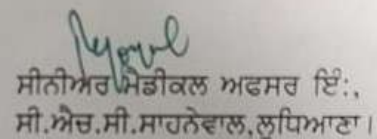 ਸੀਨੀਅਰ ਮੈਡੀਕਲ ਅਫਸਰ ਇੰ:,
ਸੀ.ਐਚ.ਸੀ.ਸਾਹਨੇਵਾਲ,ਲੁਧਿਆਣਾ।